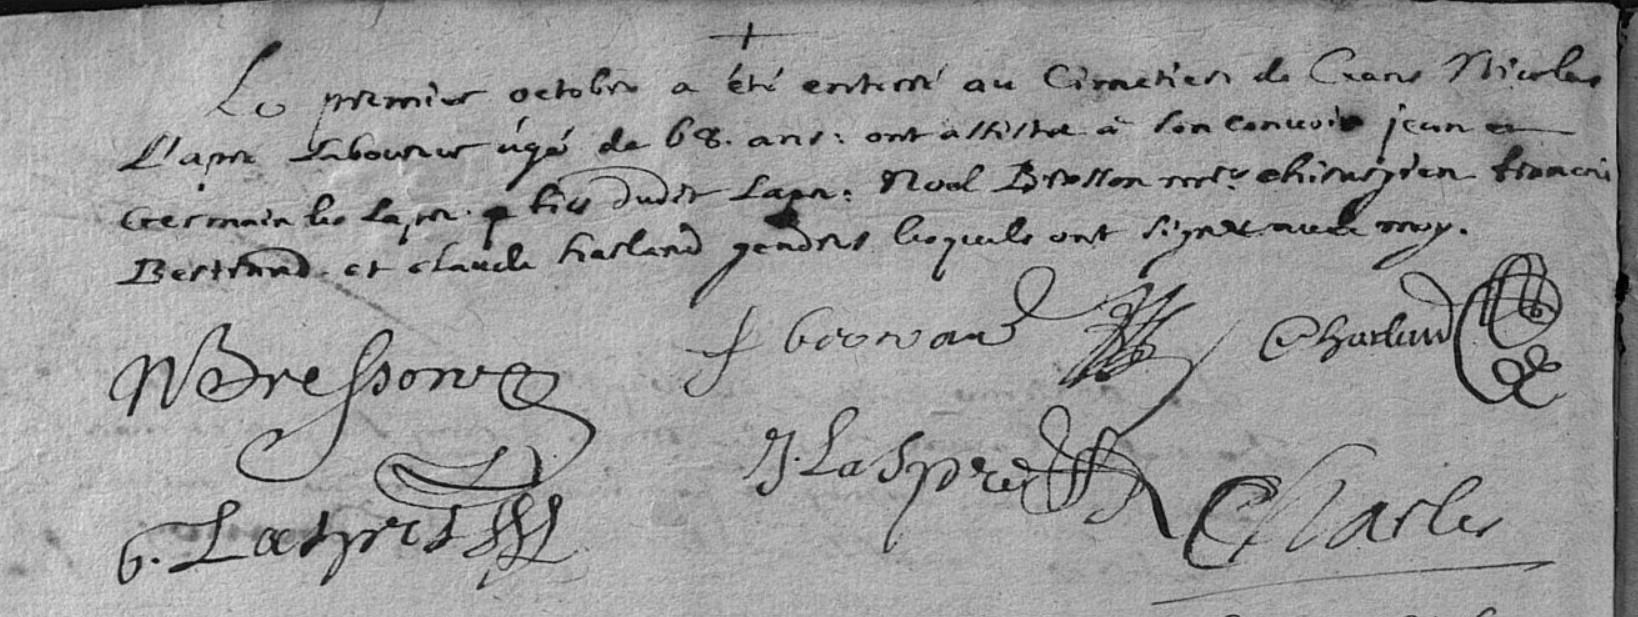 Le premier octobre a été enterré au Cimetiere de Crans Nicolas
L'apre Laboureur âgé de 68. ans: ont assisté a son convoie jean et
Germain les Lapre. fils dudit Lapr: Noel Bresson mre. chirurgien francois
Bertrand et claude harland gendres lesquels ont signe avec moy.
NBressone f Charland
J. Laspre
G. Laspre Charles